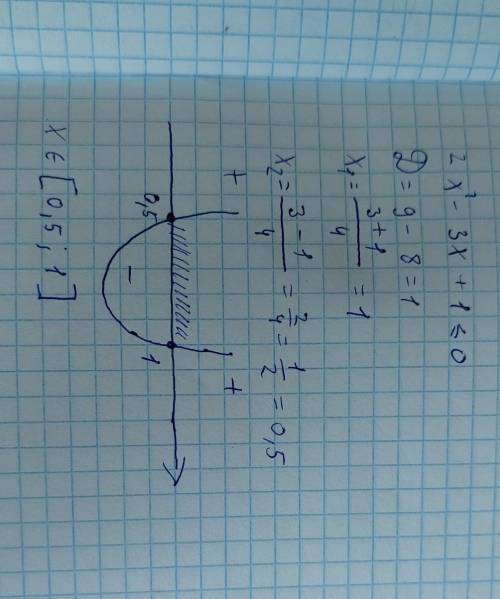 2x² - 3x + 1 ≤ 0
D = 9 - 8 = 1
x₁ = (3 + 1)/4 = 1
x₂ = (3 - 1)/4 = 2/4 = 1/2 = 0,5
+ - +
0,5 1
x ∈ [0,5; 1]